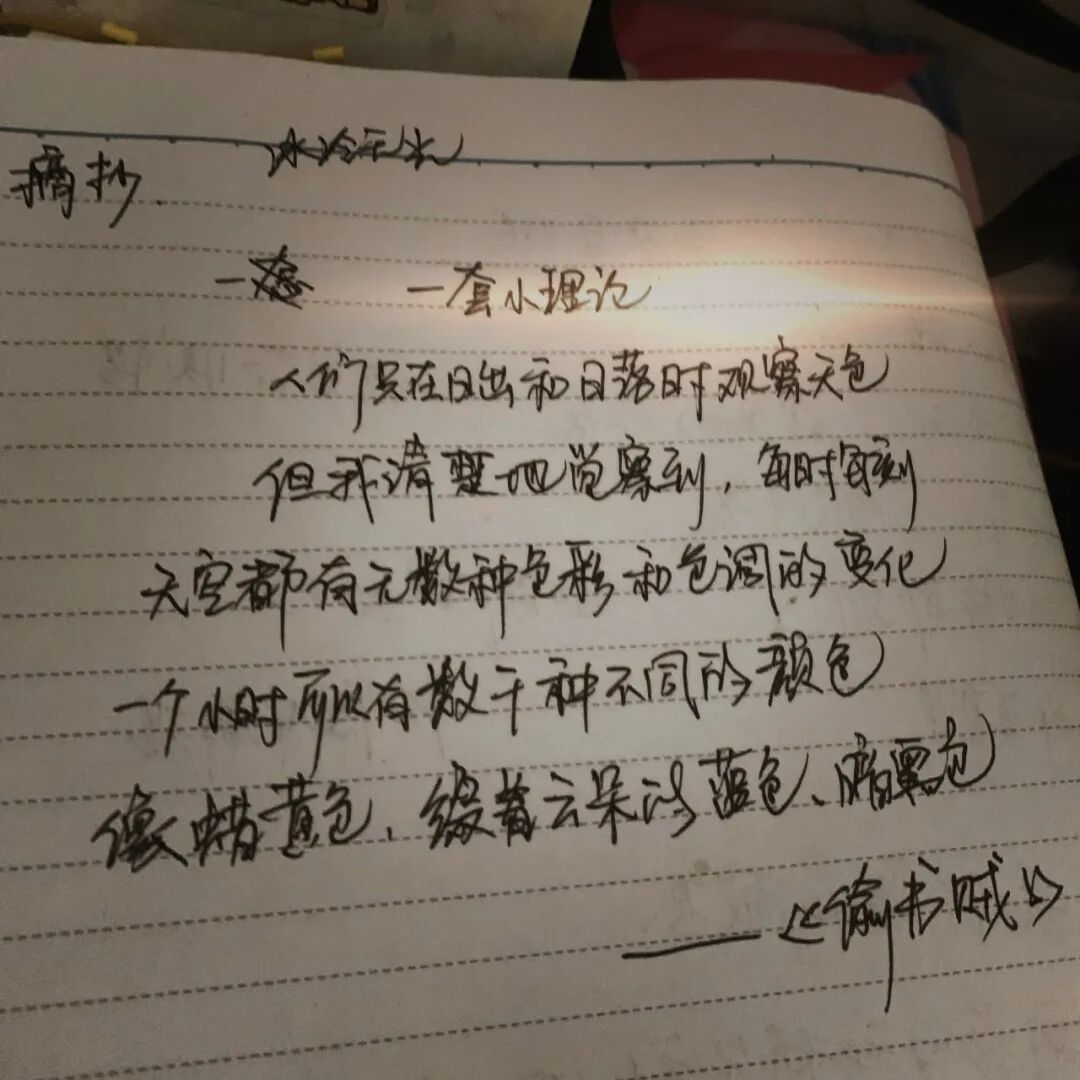 冰冷无光
摘抄.
一
一套小理论
人们只在日出和日落时观察天色
但我清楚地觉察到，每时每刻
天空都有无数种色彩和色调的变化
一个小时可以有数千种不同的颜色
像蜡黄色、缀着云朵的蓝色、暗黑色
——《偷书贼》